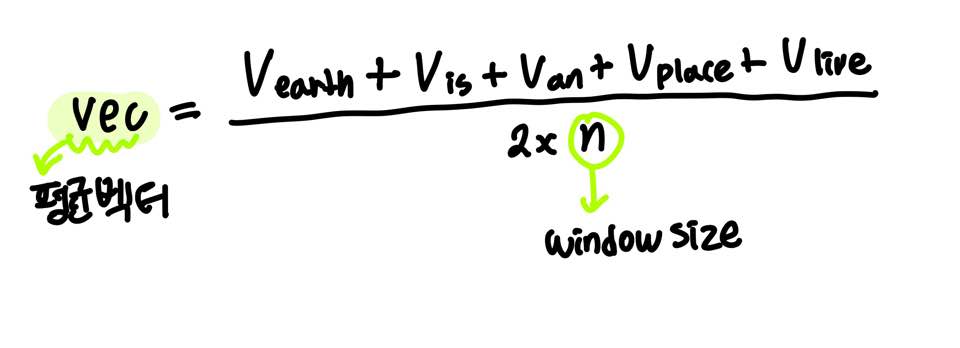 vec = (V_earth + V_is + V_an + V_place + V_live) / (2 x n)
평균벡터
window size